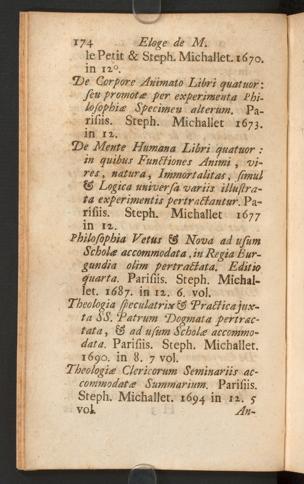 174 Eloge de M.
le Petit & Steph. Michallet. 1670.
in 12°.
De Corpore Animato Libri quatuor:
seu promotæ per experimenta Phi-
losophiæ Specimen alterum. Pa-
risiis. Steph. Michallet 1673.
in 12.
De Mente Humana Libri quatuor :
in quibus Functiones Animi, vi-
res, natura, Immortalitas, simul
& Logica universa variis illustra-
ta experimentis pertractantur. Pa-
risiis. Steph. Michallet 1677
in 12.
Philosophia Vetus & Nova ad usum
Scholæ accommodata, in Regia Bur-
gundia olim pertractata. Editio
quarta. Parisiis. Steph. Michal-
let. 1687. in 12. 6. vol.
Theologia speculatrix & Practica jux-
ta SS. Patrum Dogmata pertrac-
tata, & ad usum Scholæ accommo-
data. Parisiis. Steph. Michallet.
1690. in 8. 7 vol.
Theologiæ Clericorum Seminariis ac-
commodatæ Summarium. Parisiis.
Steph. Michallet. 1694 in 12. 5
vol. An-